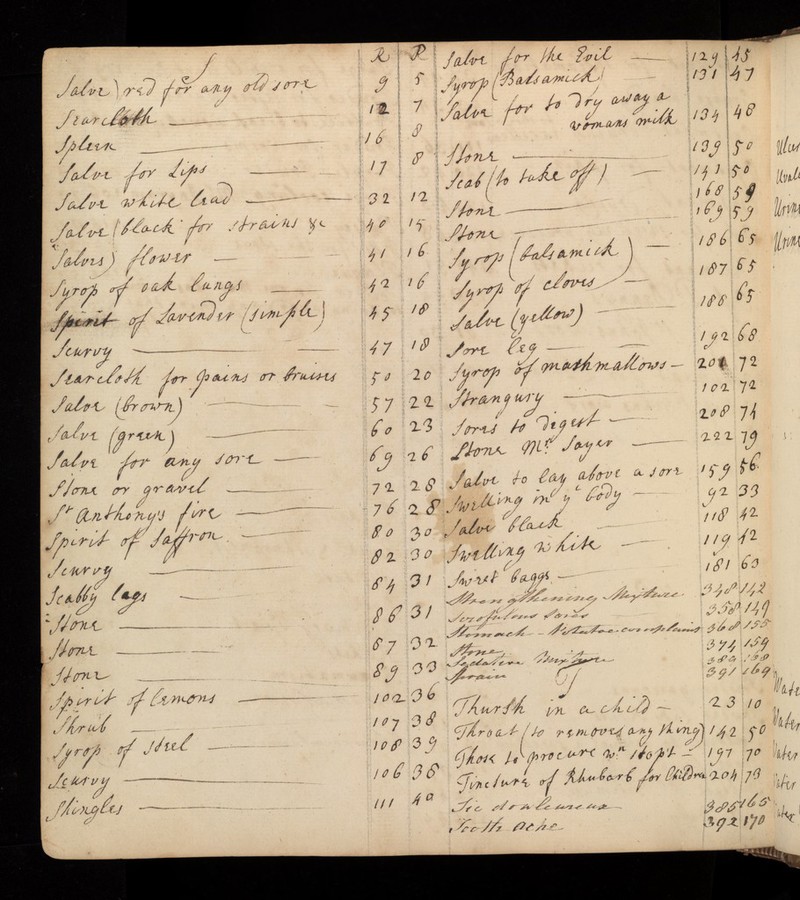 S
R P
Salve) red for any old sore 9 5
Searcloth 12 7
Spleen 16 8
Salve for Lips 17 8
Salve white lead 32 12
Salve (black for strains &c 40 15
Salves) flower 41 16
Syrop of oak lungs 42 16
Spirit of Lavender (simple) 45 18
Scurvy 47 18
Searcloth for pains or bruises 50 20
Salve (brown) 57 22
Salve (green) 60 23
Salve for any sore 69 26
Stone or gravel 72 28
St Anthonys fire 76 28
Spirit of Saffron 80 30
Scurvy 82 30
Scabby legs 84 31
Stone 86 31
Stone 87 32
Stone 89 33
Spirit of Lemons 102 36
Shrub 107 38
Syrop of steel 108 39
Scurvy 106 38
Shingles 111 40
Salve for the Evil 129 45
Syrop (Balsamick) 131 47
Salve for to dry away a
womans milk 134 48
Stone 139 50
Scab (to take off) 141 50
Stone 168 59
Stone 169 59
Syrop (balsamick) 186 65
Syrop of cloves 187 65
Salve (yellow) 188 65
Sore leg 192 68
Syrop of mashmallows 201 72
Strangury 102 72
Sores to digest 208 74
Stone Mrs Sayer 222 79
Salve to lay above a sore 159 56
Swelling in ye body 92 33
Salve black 118 42
Swelling white 119 42
Sweet baggs 181 63
Strengthening Mixture 348 142
Scrofulous Sores 358 149
Stomach complaint 368 155
Stone 374 159
Sedative Mixture
Strain 391 169
Thursh in a child 23 10
Throat (to remove any thing) 142 50
Those to procure wn stopt 197 70
Tincture of Rhubarb for Children 204 73
Tic douleureux 385 165
Tooth Ache 392 170